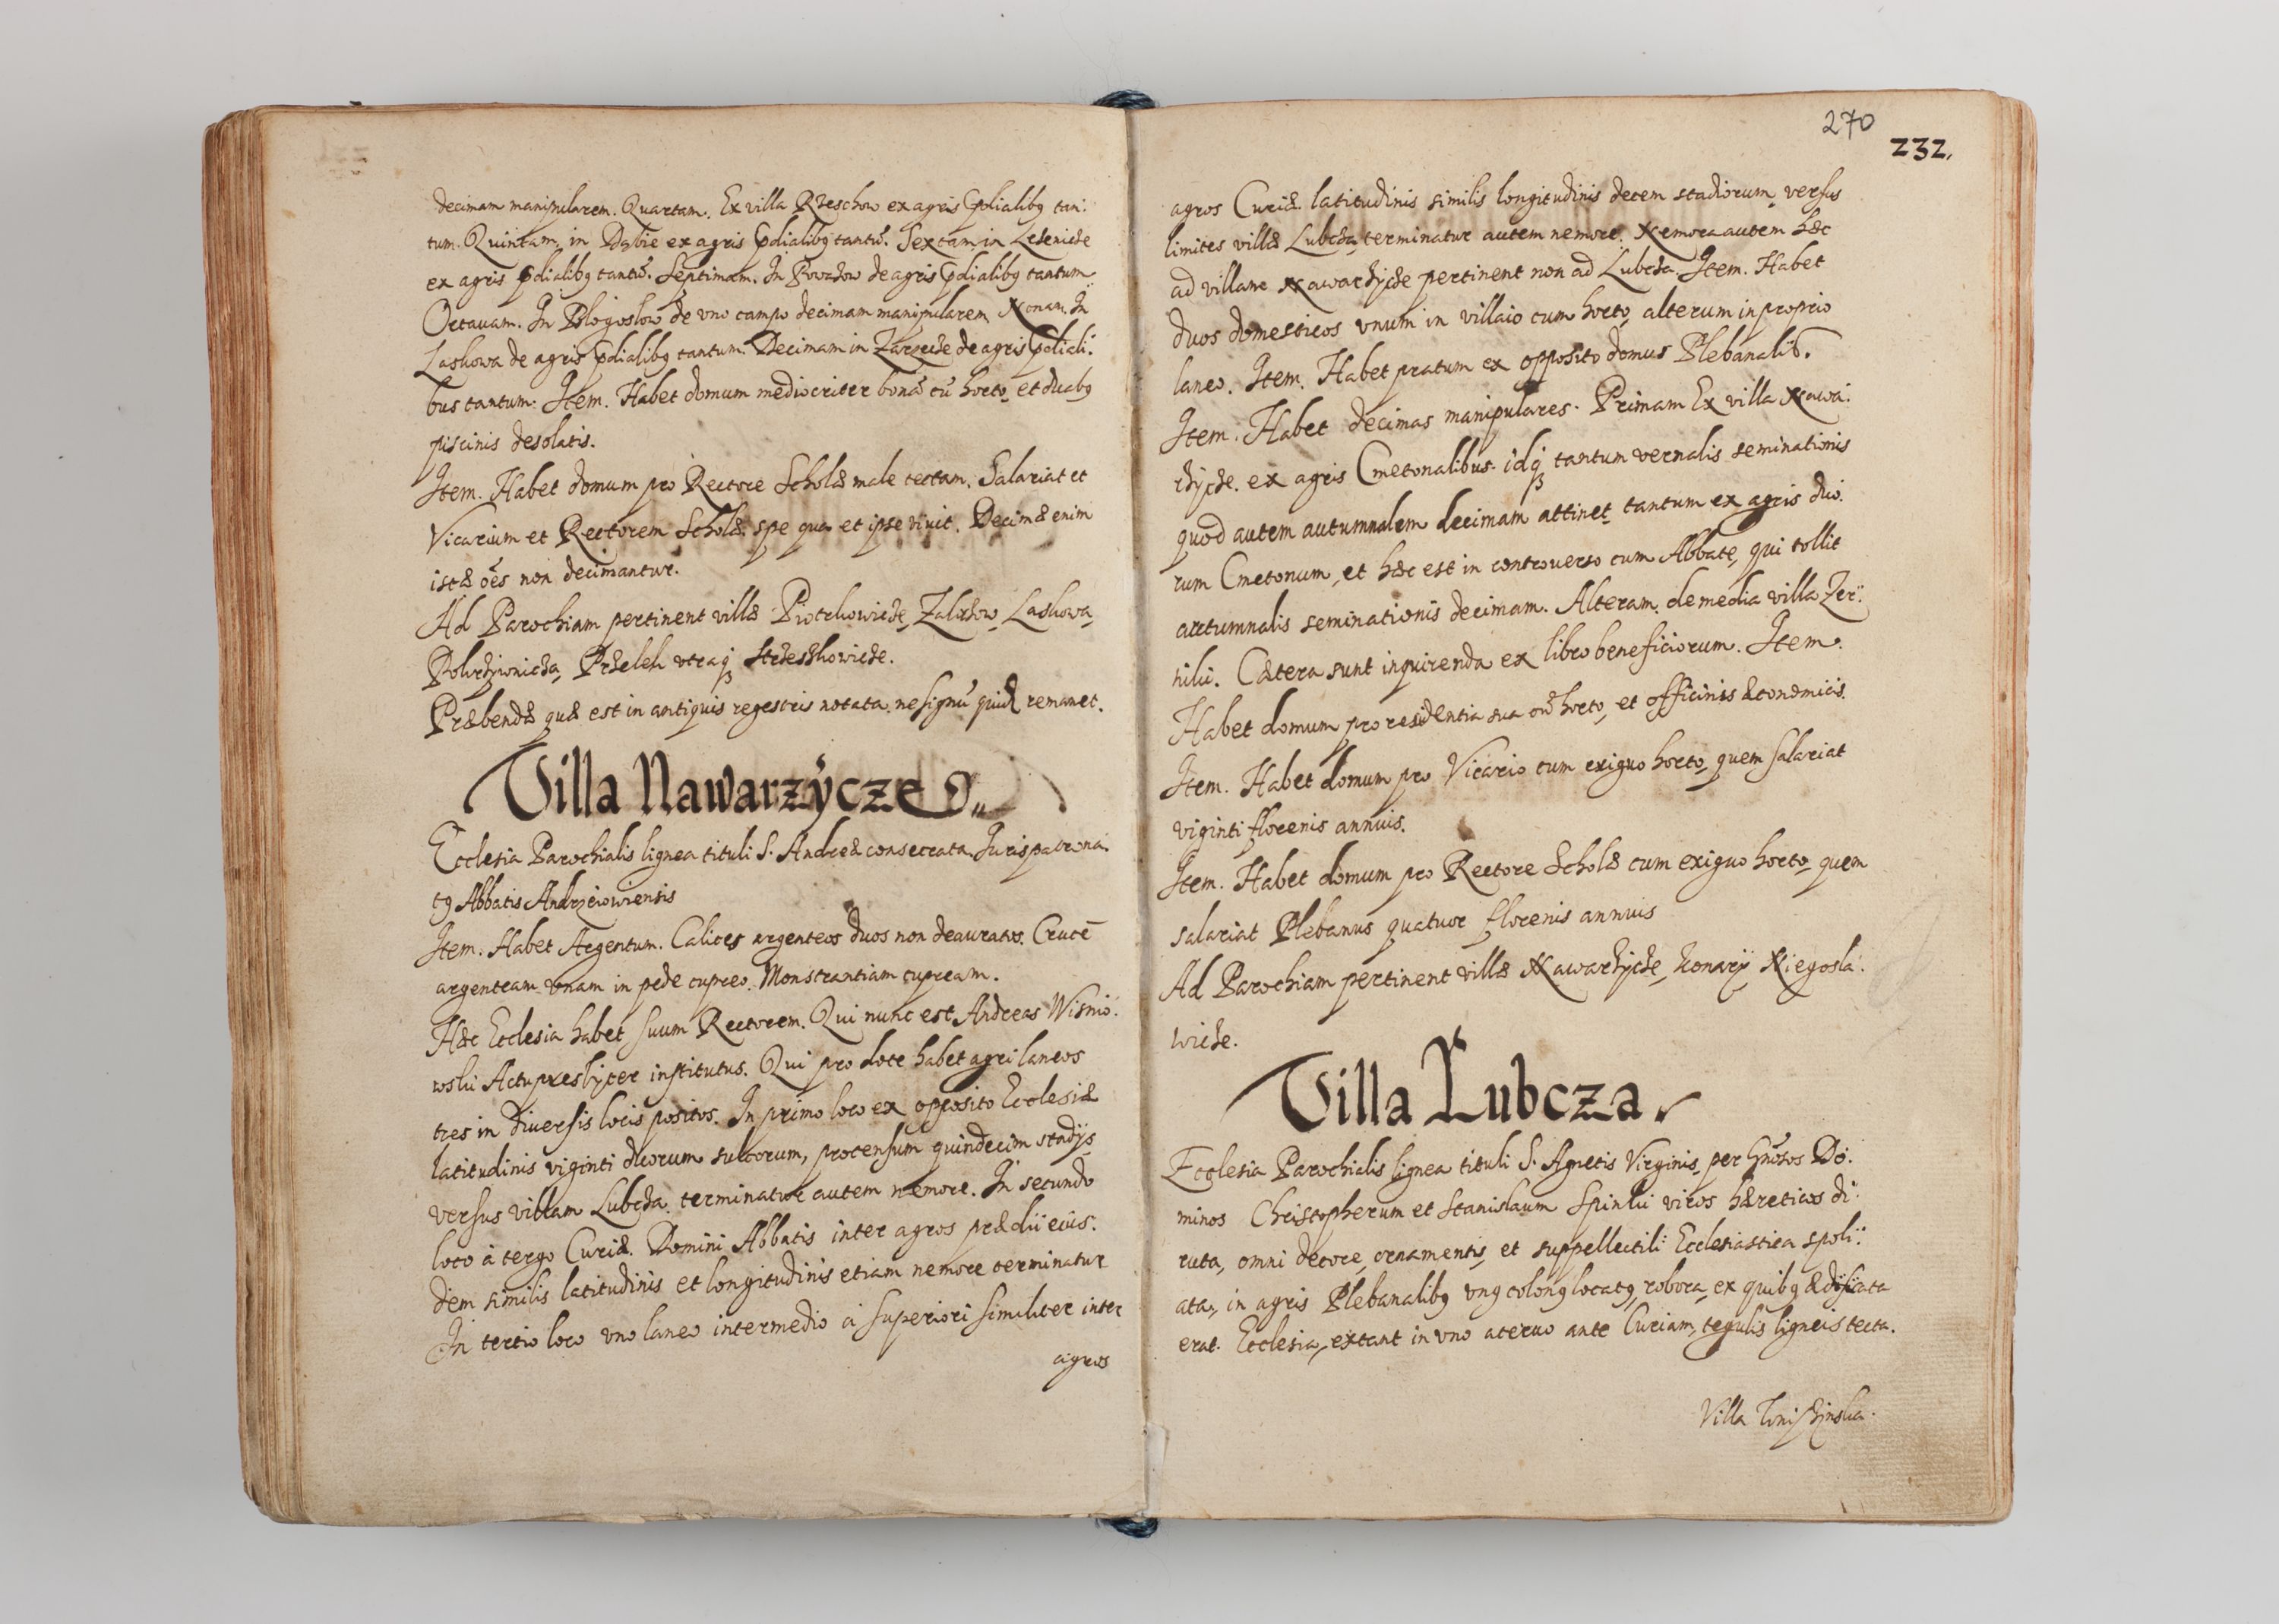 decimam manipularem. Quartam. Ex villa Rzeschow ex agris Pdialibꝫ tan:
tum. Quintam, in Dąbie ex agris Pdialibꝫ tantū. Sextam in
ex agris Pdialibꝫ tantū. Septimam. In de agris Pdialibꝫ tantum
Octauam. In Blogoslow de vno campo decimam manipularem Nonam. In
Laskowa de agris Pdialibꝫ tantum. Decimam in Zarzecze de agris Pdiali:
bus tantum. Item. Habet domum mediocriter bonā cū horto, et duabꝫ
piscinis desolatis.
Item. Habet domum pro Rectore Scholæ male tectam. Salariat et
Vicarium et Rectorem Scholæ. spe qua et ipse viuit. Decimæ enim
istæ oēs non decimantur.
Ad Parochiam pertinent villæ Piotrkowicze, Zalesow, Laskowa,
Przelek vtraqꝫ
Præbendæ quæ est in antiquis regestris notata. ne signū quid remanet.
Villa Nawarzÿcze
Ecclesia Parochialis lignea tituli S. Andreæ consecrata. Juris patrona:
tꝫ Abbatis Andrzeiowiensis
Item. Habet Argentum. Calices argenteos duos non deauratos. Crucē
argenteam vnam in pede cupreo. Monstrantiam cupream.
Hæc Ecclesia habet suum Rectorem. Qui nunc est Andreas Wisnio:
wski Actu presbÿter institutus. Qui pro dote habet agri laneos
tres in diuersis locis positos. In primo loco ex opposito Ecclesiæ
latitudinis viginti duorum sulcorum, protensum quindecim stadÿs
versus villam Lubcza. terminatur autem nemore. In secundo
loco à tergo Curiæ. Domini Abbatis inter agros prædii eius:
dem similis latitudinis et longitudinis etiam nemore terminatur
In tertio loco vno laneo intermedio à superiori similiter inter
agros
270
232,
agros Curiæ. latitudinis similis longitudinis decem stadiorum, versus
limites villæ Lubcza, terminatur autem nemore. Nemora autem hæc
ad villam Nawarzÿcze pertinent non ad Lubcza. Item. Habet
duos domesticos vnum in villaio cum horto, alterum in proprio
laneo. Item. Habet pratum ex opposito domus Plebanalis.
Item. Habet decimas manipulares. Primam Ex villa Nawa:
rzÿcze. ex agris Cmetonalibus. idqꝫ tantum vernalis seminationis
quod autem autumnalem decimam attinet, tantum ex agris duo:
rum Cmetonum, et hæc est in controuerso cum Abbate, qui tollit
autumnalis seminationis decimam. Alteram. de media villa Zer:
niki. Cætera sunt inquirenda ex libro beneficiorum. Item.
Habet domum pro residentia sua cū horto, et officinis æconomicis.
Item. Habet domum pro Vicario cum exiguo horto, quem salariat
viginti florenis annuis.
Item. Habet domum pro Rectore Scholæ cum exiguo horto, quem
salariat Plebanus quatuor florenis annuis
Ad Parochiam pertinent villæ Nawarzÿcze, Konarÿ, Niegosla:
wicze.
Villa Lubcza
Ecclesia Parochialis lignea tituli S. Agnetis Virginis, per Gnosos Do:
minos Christopherum et Stanislaum Spinki viros hæreticos di:
ruta, omni decore, ornamentis, et suppellectili Ecclesiastica spoli:
ata, in agris Plebanalibꝫ vnꝫ colonꝫ locatꝫ, robora, ex quibꝫ ædificata
erat Ecclesia, extant in vno aceruo ante Curiam, tegulis ligneis tecta.
Villa